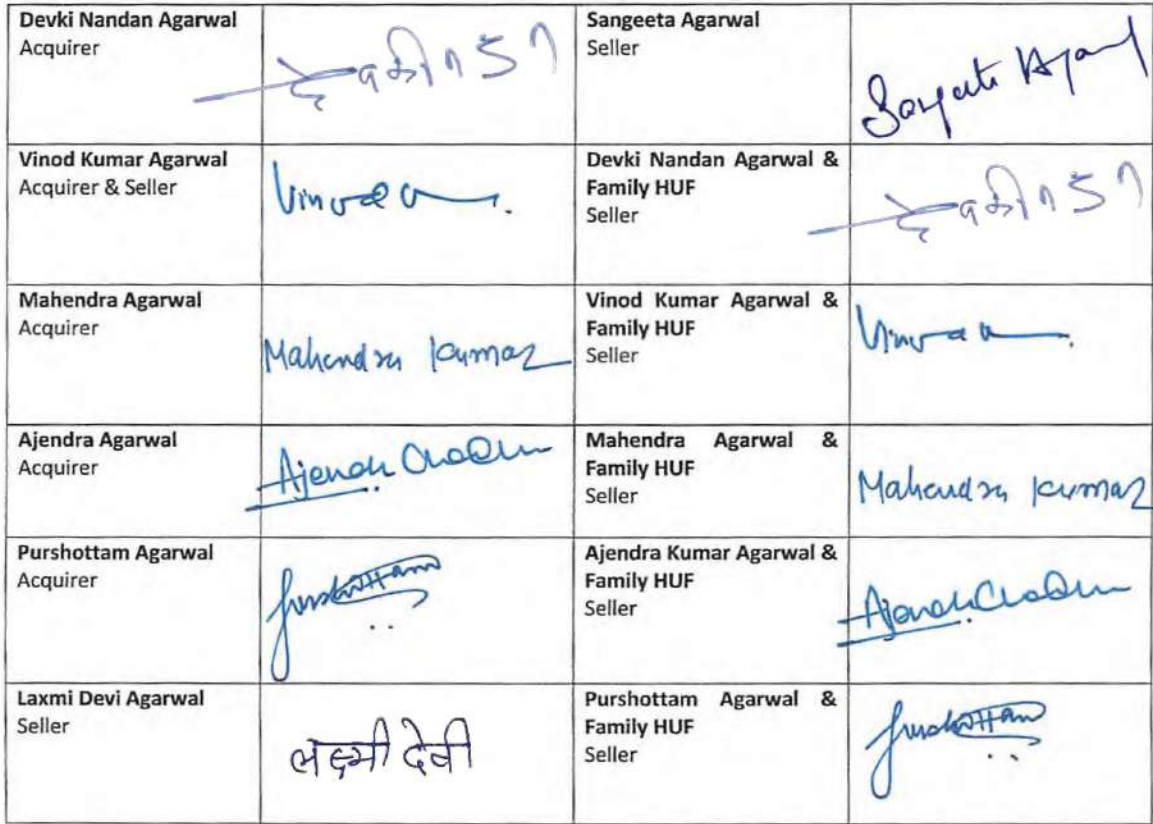 Devki Nandan Agarwal
Acquirer
Sangeeta Agarwal
Seller
Vinod Kumar Agarwal
Acquirer & Seller
Devki Nandan Agarwal &
Family HUF
Seller
Mahendra Agarwal
Acquirer
Mahendra Kumar
Vinod Kumar Agarwal &
Family HUF
Seller
Ajendra Agarwal
Acquirer
Mahendra Agarwal &
Family HUF
Seller
Mahendra Kumar
Purshottam Agarwal
Acquirer
Ajendra Kumar Agarwal &
Family HUF
Seller
Laxmi Devi Agarwal
Seller
लक्ष्मी देवी
Purshottam Agarwal &
Family HUF
Seller